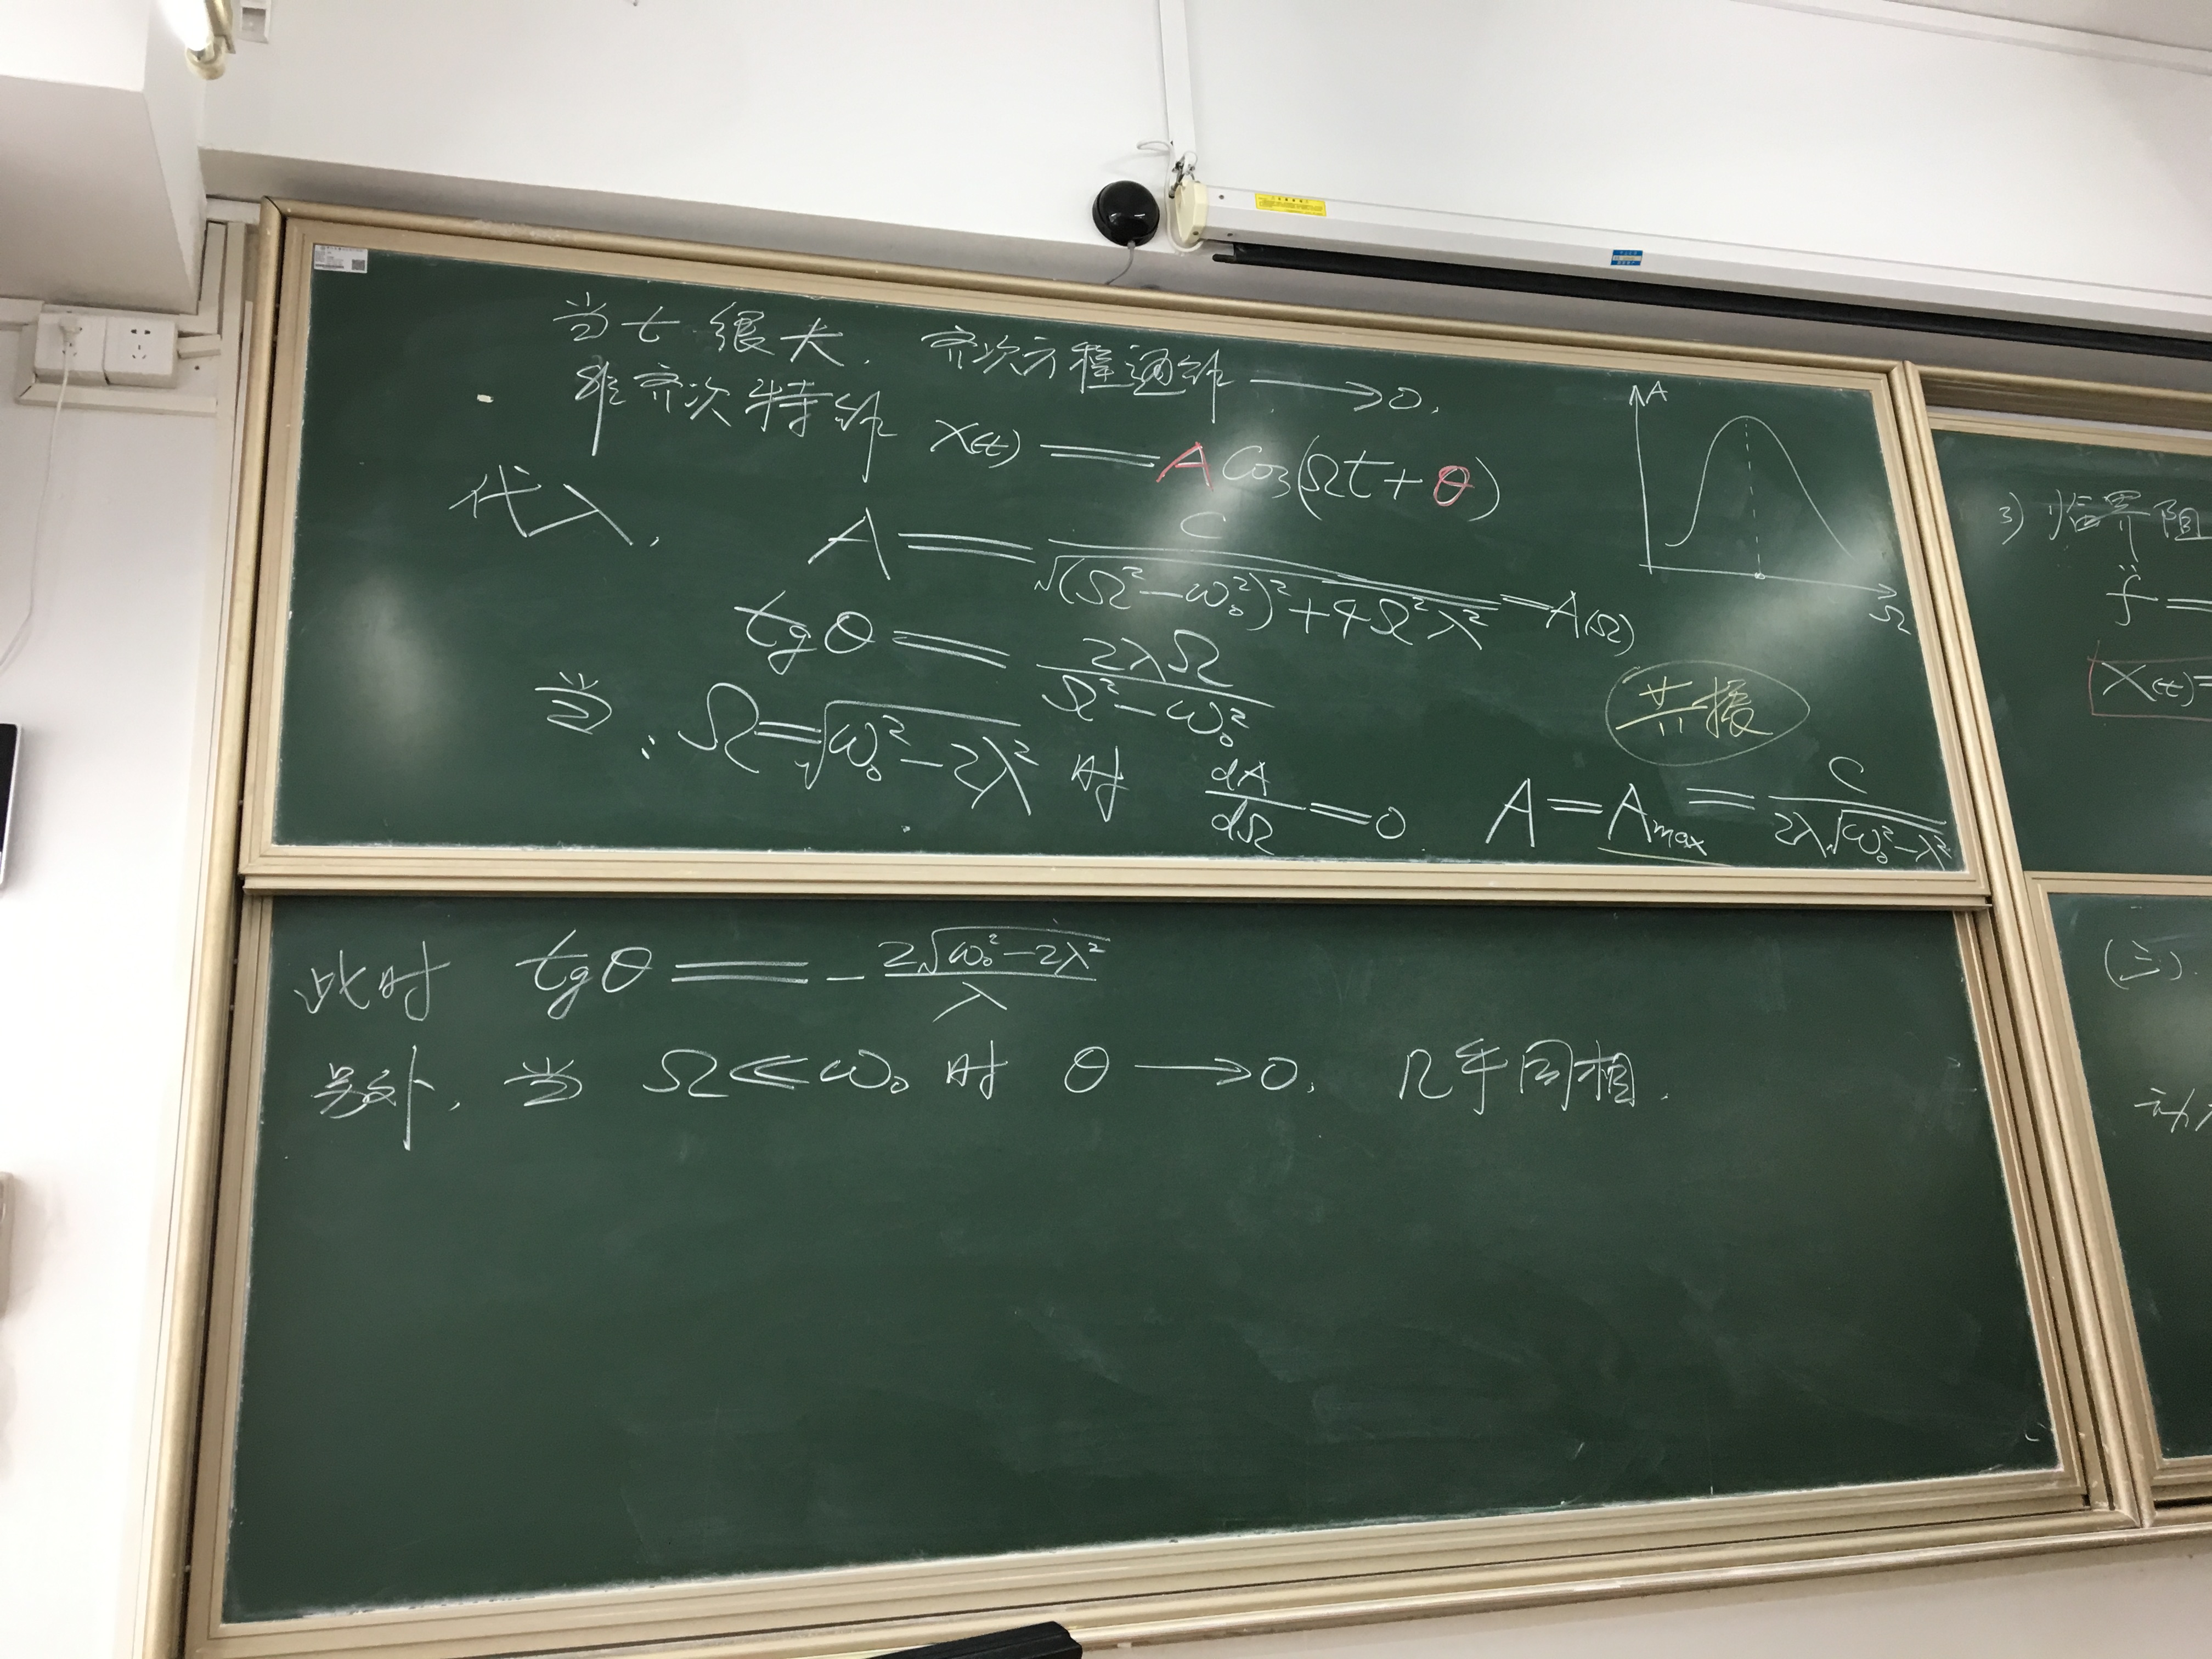 当 t 很大, 齐次方程通解 ⟶ 0.
非齐次特解 X(t) = A Cos(Ωt + θ)
代入, A = C / √((Ω² − ω₀²)² + 4Ω²λ²) = A(Ω)
tgθ = 2λΩ / (Ω² − ω₀²)
当 Ω = √(ω₀² − 2λ²) 时 dA/dΩ = 0 A = Amax = C / (2λ√(ω₀² − λ²))
A
Ω
共振
此时 tgθ = − 2√(ω₀² − 2λ²) / λ
另外, 当 Ω ≪ ω₀ 时 θ ⟶ 0, 几乎同相.
3) 临界阻
f̈ =
X(t) =
(三).
动